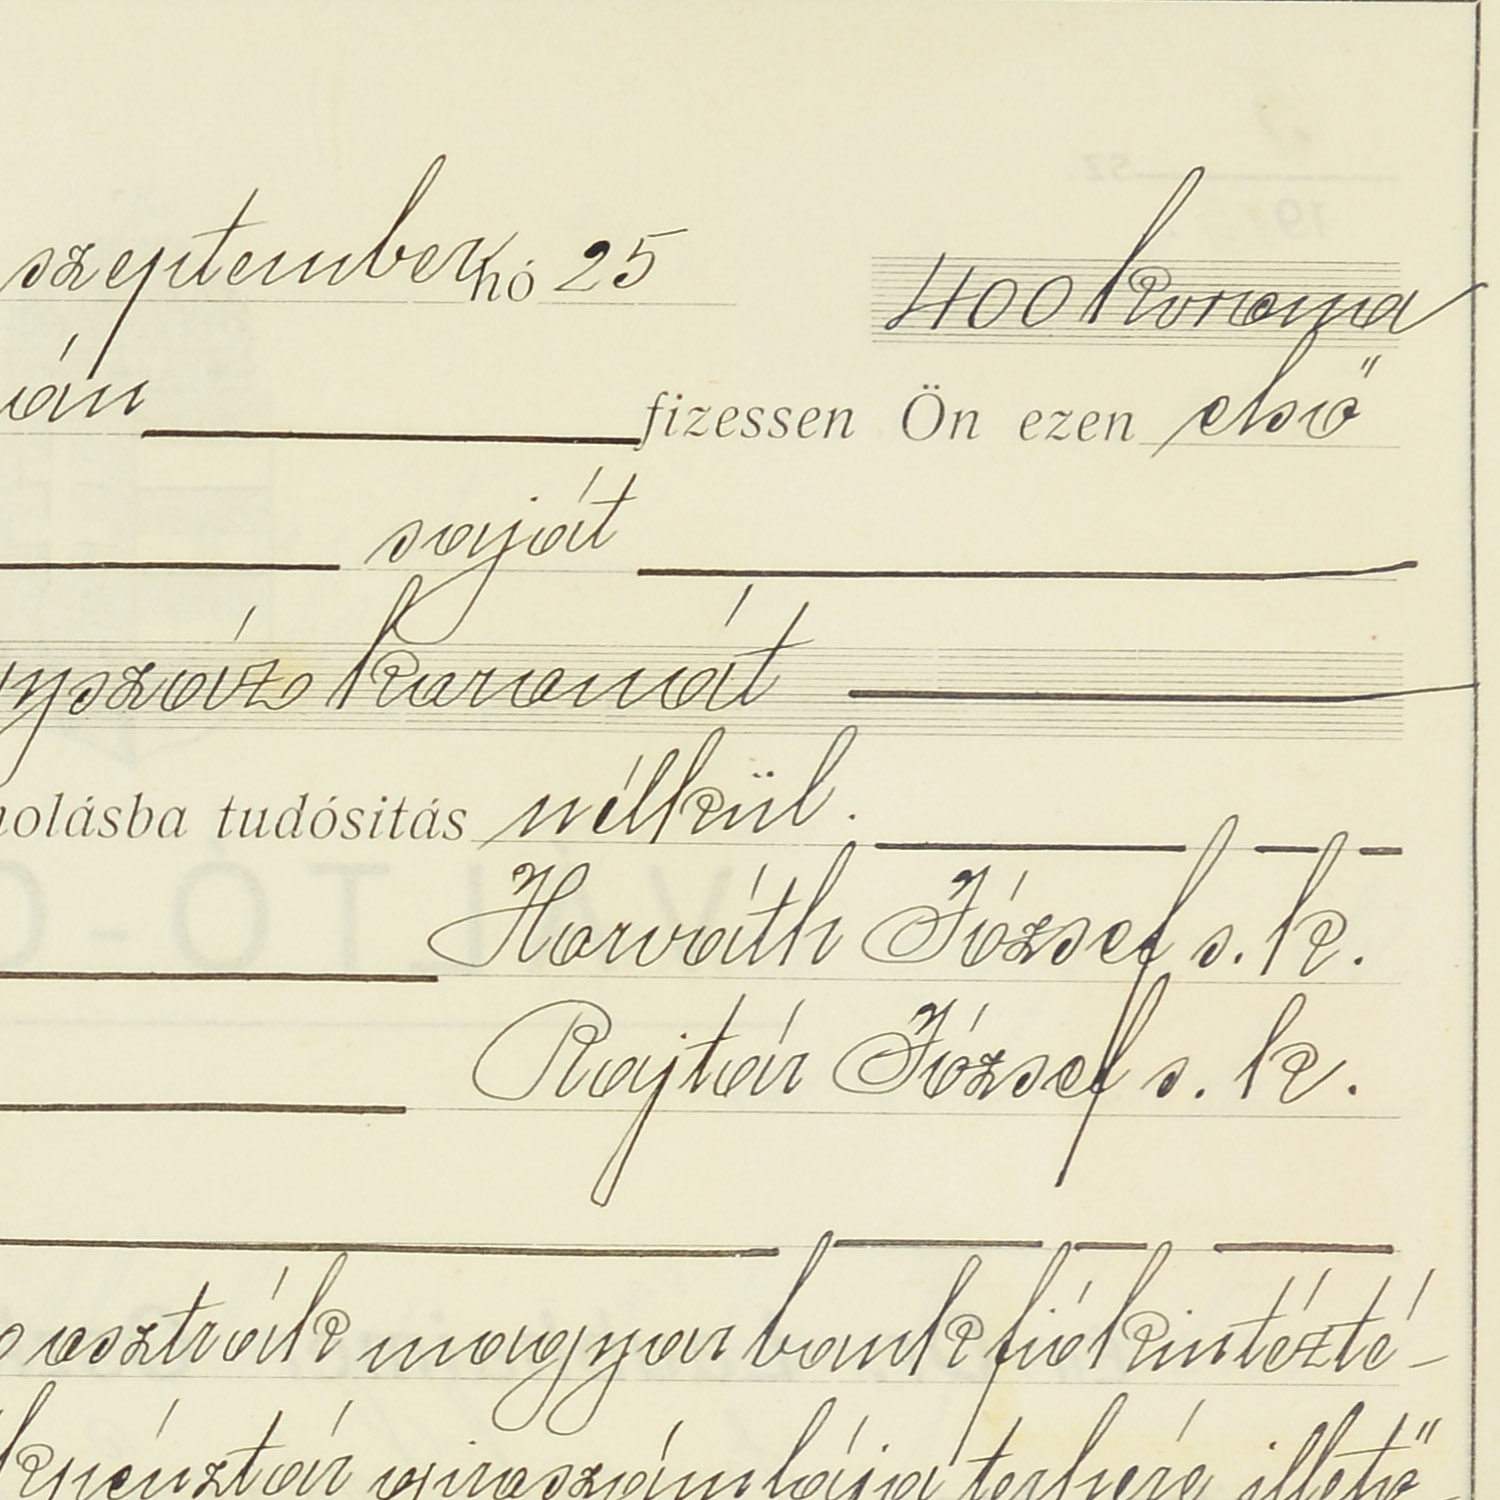 szeptember hó 25 400 korona
ián fizessen Ön ezen első
saját
yszáz koronát
nolásba tudósitás nélkül.
Horváth József s. k.
Rajtár József s. k.
osztrák magyar bank fiókintézté-
kpénztár giroszámlája terhére illető